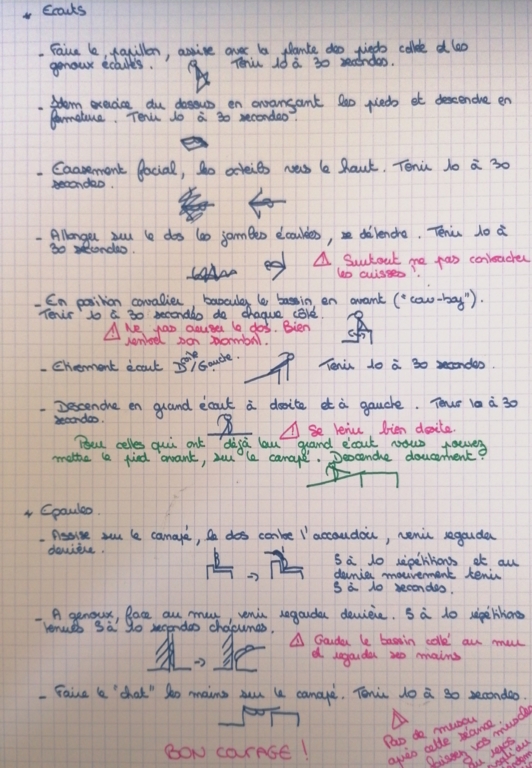 * Ecarts
- Faire le papillon, assise avec la plante des pieds collée et les
genoux écartés. Tenir 10 à 30 secondes.
- Idem exercice du dessus en avançant les pieds et descendre en
fermeture. Tenir 10 à 30 secondes.
- Ecrasement facial, les orteils vers le haut. Tenir 10 à 30
secondes.
- Allonger sur le dos les jambes écartées, se détendre. Tenir 10 à
30 secondes.
⚠ Surtout ne pas contracter
les cuisses !
- En position cavalier, basculer le bassin en avant ("cow-boy").
Tenir 10 à 30 secondes de chaque côté.
⚠ Ne pas creuser le dos. Bien
rentrer son nombril.
- Etirement écart Droite/Gauche. Tenir 10 à 30 secondes.
- Descendre en grand écart à droite et à gauche. Tenir 10 à 30
secondes.
⚠ Se tenir bien droite.
Pour celles qui ont déjà leur grand écart vous pouvez
mettre le pied avant, sur le canapé. Descendre doucement !
* Epaules
- Assise sur le canapé, le dos contre l'accoudoir, venir regarder
derrière.
5 à 10 répétitions et au
dernier mouvement tenir
5 à 10 secondes.
- A genoux, face au mur, venir regarder derrière. 5 à 10 répétitions
tenues 5 à 10 secondes chacunes.
⚠ Garder le bassin collé au mur
et regarder ses mains
- Faire le "chat" les mains sur le canapé. Tenir 10 à 30 secondes.
⚠
Pas de muscu
après cette séance.
laissez vos muscles
au repos
BON COURAGE !